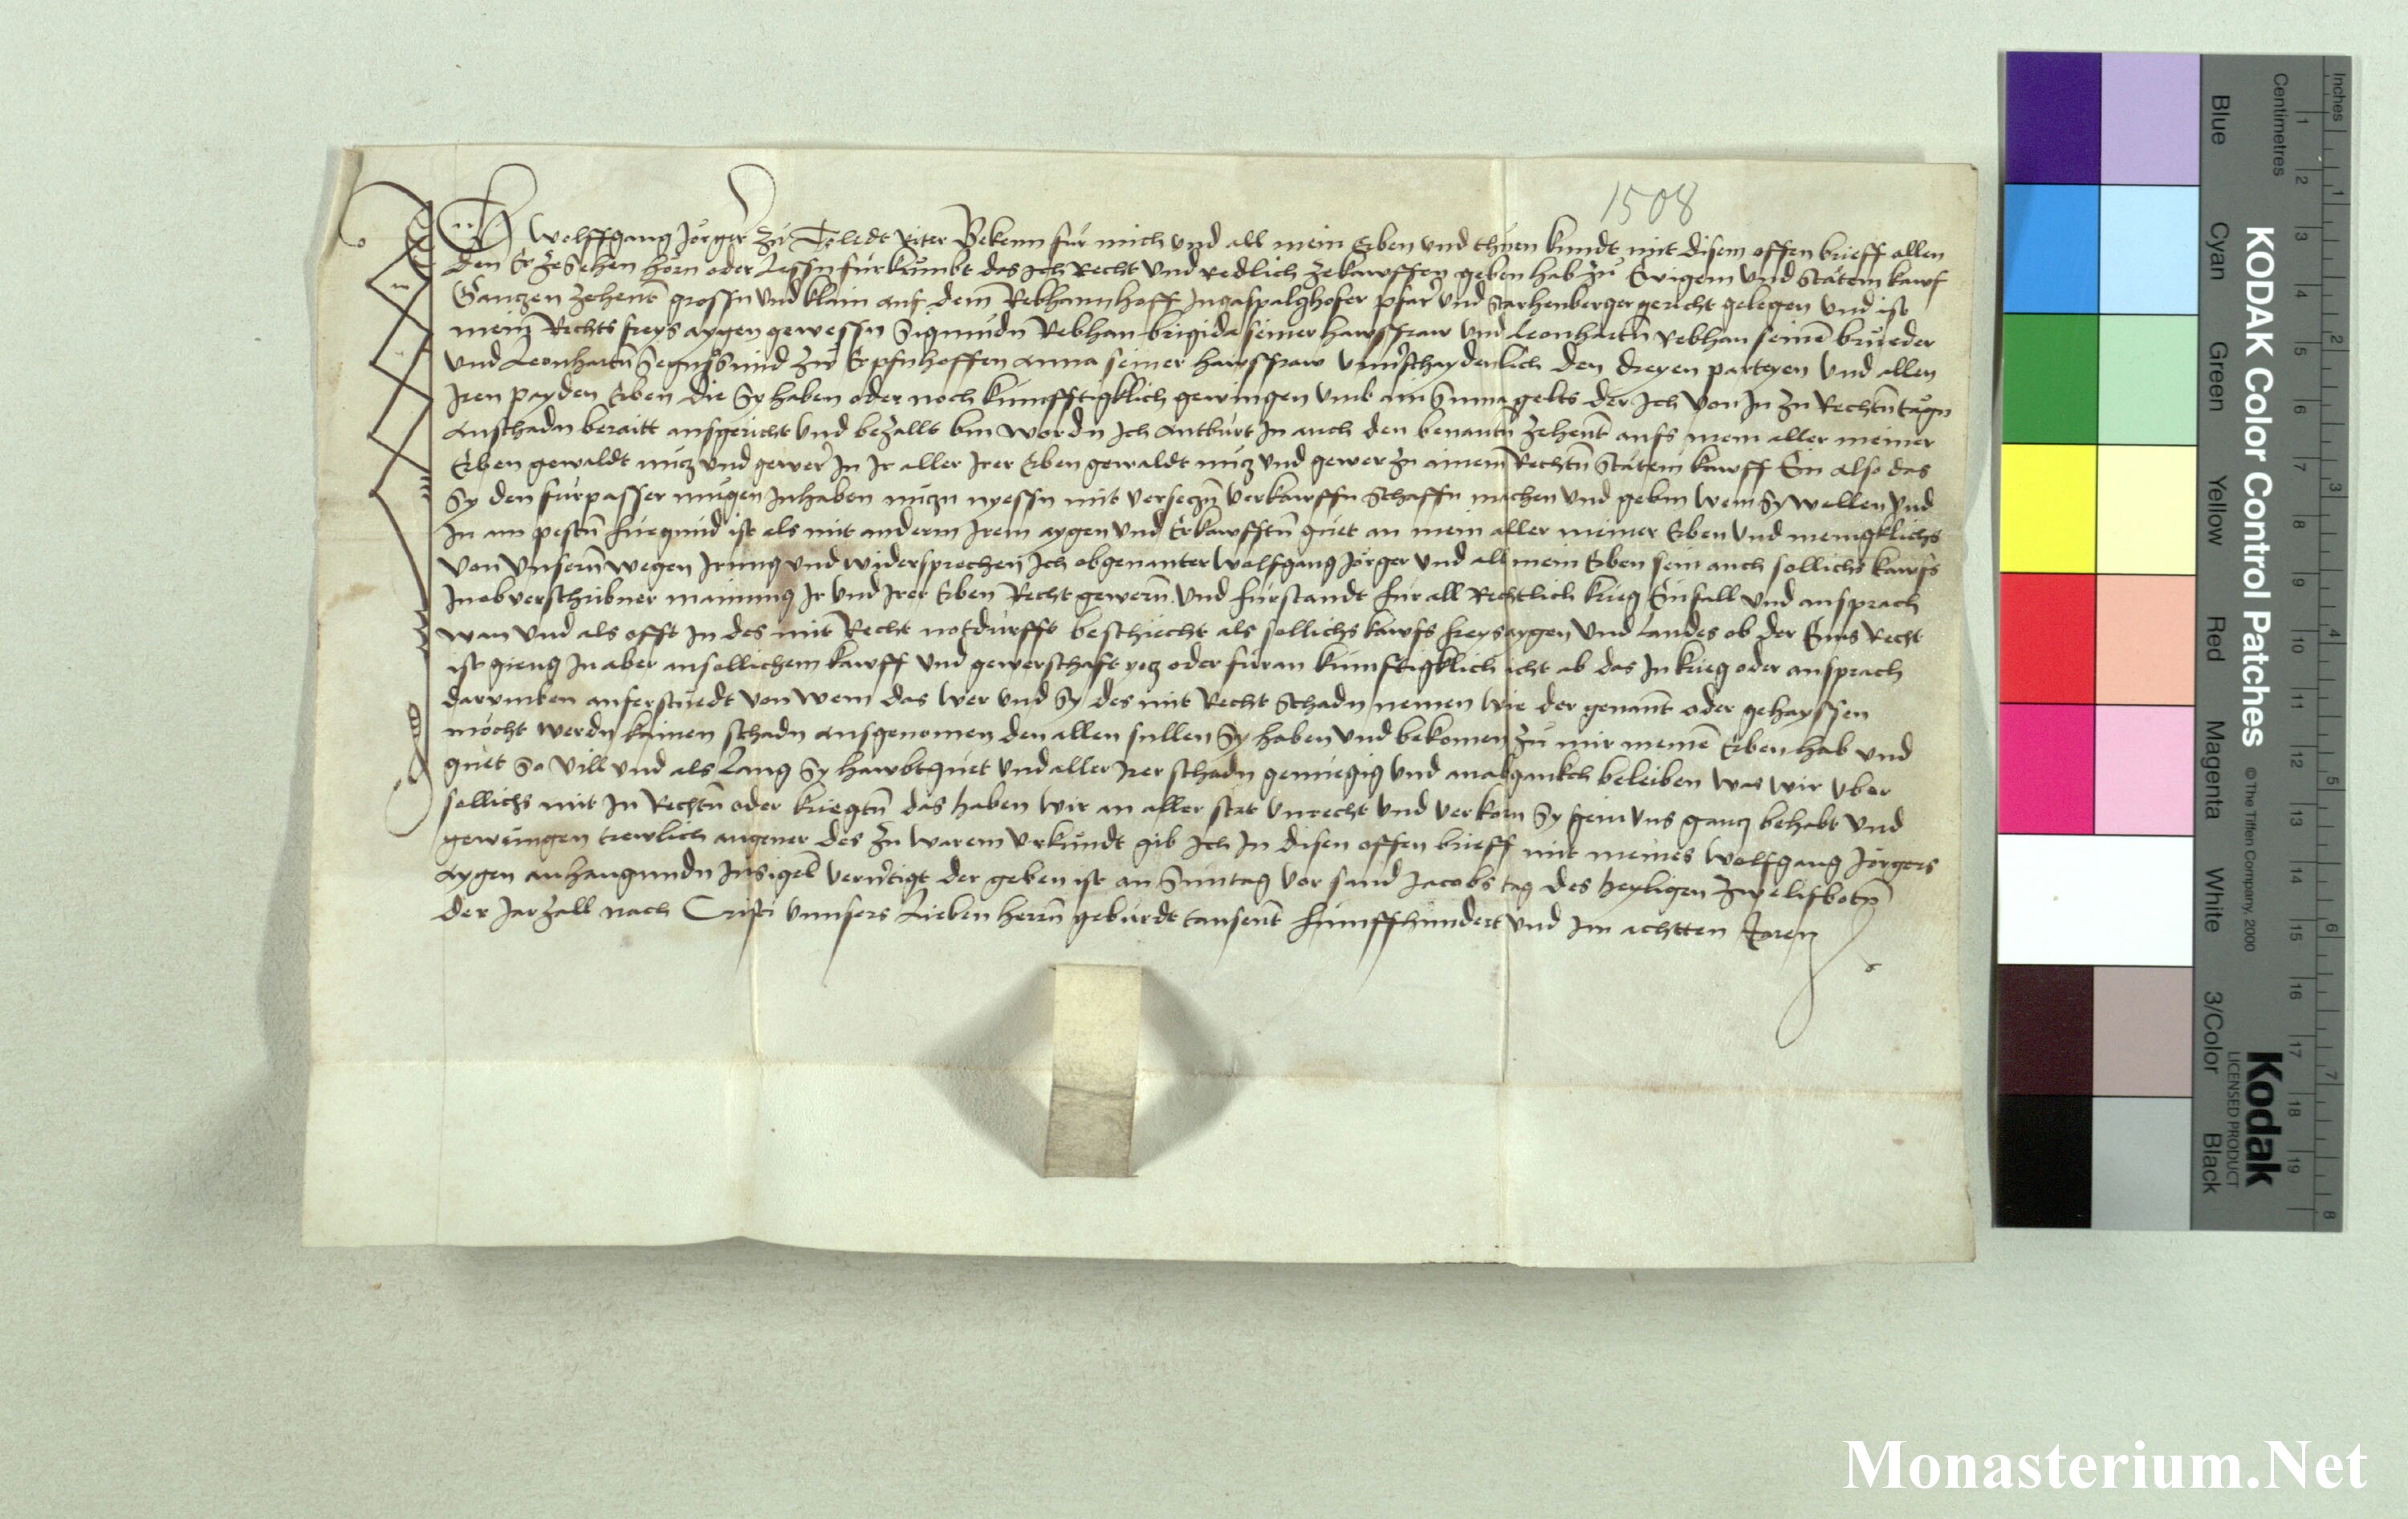 1508
Ich Wolffgang Jörger zu Toledt Riter Bekenn für mich und all mein Erben und thuen kundt mit disem offen brieff allen
den Er ze Sehen hörn oder Lessn fürkumbt das ich Recht und redlich ze kawffen geben hab zu Ewigem und Stätem kawf
Ganczen zehent grossn und klain auf dem Rebhannhoff In gaspalzhofer pfar und Starhenberger gericht gelegen und ist
meinz Rechts freys aygen gewessn Sigmudn Rebhan brigida seiner hawsfraw und Leonhartn Rebhan seinē brueder
und Leonhartn zu Erpfnhoffen Anna seiner hawsfraw unuerschaydenlich den dreyen parteyen und allen
Iren payden Erben die Sy haben oder noch kumfftigklich gewingen umb ain Suma gelts der Ich von In zu Rechtn tagn
An schadn beraitt ausgericht und bezallt bin wordn Ich Antburt In auch den benantn zehent aufs mein aller meiner
Erben gewaldt nucz und gewer In Ir aller Irer Erben gewaldt nucz und gewer zu ainem Rechtn Stätem kawff Ein also das
Sy den fürpasser mugen Inhaben nuczn nyessn mit verseczn verkawffn Schaffn machen und gebm wem Sy wellen und
In am pestn fuegund ist als mit anderm Irem aygen und Erkawfftn guet an mein aller meiner Erben und menigklichs
von unsern wegen Irrung und widersprechen Ich obgenanter Wolfgang Jörger und all mein Erben sein auch sollichs kawfs
In obverschribner mainung Ir und Irer Erben Recht gewern und fürstandt für all Rechtlich krieg Einfall und ansprach
wan und als offt In des mit Recht notdurfft beschiecht als sollichs kawfs freys aygen und Landes ob der Enns Recht
ist gieng In aber an sollichem kawff und gewerschaft yecz oder füran kumftigklich icht ab das In krieg oder ansprach
darumben auferstuedt von wem das wer und Sy des mit Recht Schadn nemen wie der genant oder gehayssen
möcht werdn kainen schadn ausgenomen den allen sullen Sy haben und bekomen zu mir meinē Erben hab und
guet So vill und als Lang Sy hawbtguet und aller Irer schadn genuegig und an abgankch beleiben was wir uber
sollichs mit In Rechtn oder kriegtn das haben wir an aller stat unrecht und verlorn Sy sein uns gancz behabt und
gewungen trewlich angeuer des zu warem urkundt gib Ich In disen offen brieff mit meines Wolfgang Jörgers
Aygen anhangundn Insigel der geben ist an Suntag vor sand Jacobs tag des heyligen zwelifbotn
der Jarzall nach Cristi unnsers Lieben herrn geburdt tausent fumffhundert und Im achtten Jaren
KODAK Color Control Patches
© The Tiffen Company, 2000
Kodak
LICENSED PRODUCT
Blue Cyan Green Yellow Red Magenta White 3/Color Black
Inches 1 2 3 4 5 6 7 8
Centimetres 1 2 3 4 5 6 7 8 9 10 11 12 13 14 15 16 17 18 19
Monasterium.Net